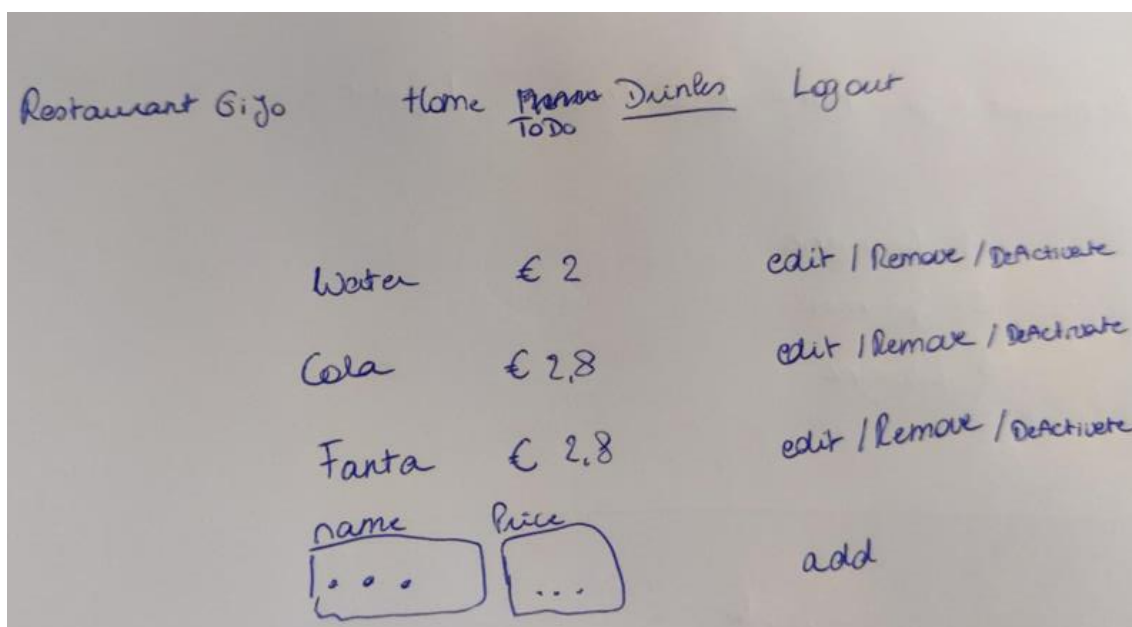 Restaurant GiJo Home Drinks Logout
ToDo
Water € 2 edit / Remove / DeActivate
Cola € 2,8 edit / Remove / DeActivate
Fanta € 2,8 edit / Remove / DeActivate
name Price
... ... add